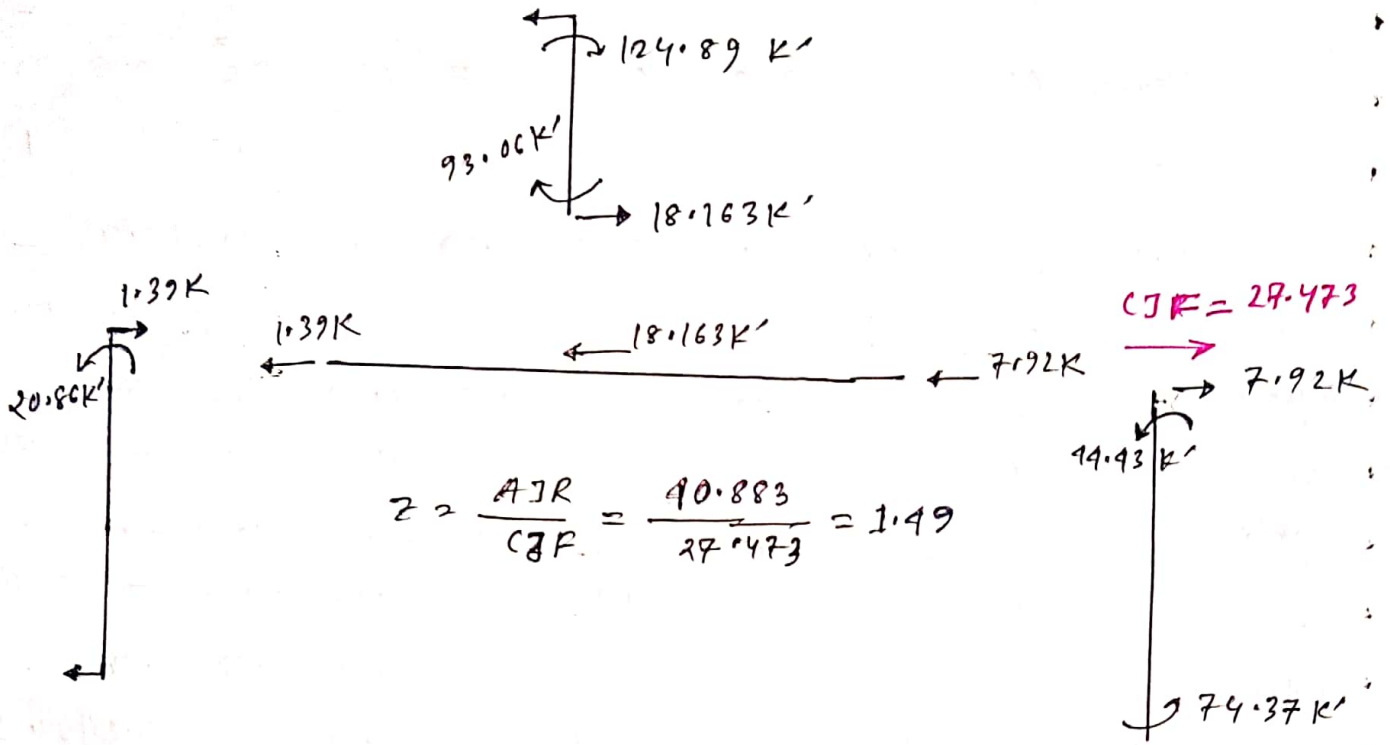 124.89 K'
93.06K'
18.163K'
1.39K
20.86K'
1.39K
18.163K'
7.92K
CJF = 27.473
7.92K
44.43 K'
Z = AJR / CJF. = 40.883 / 27.473 = 1.49
74.37 K'